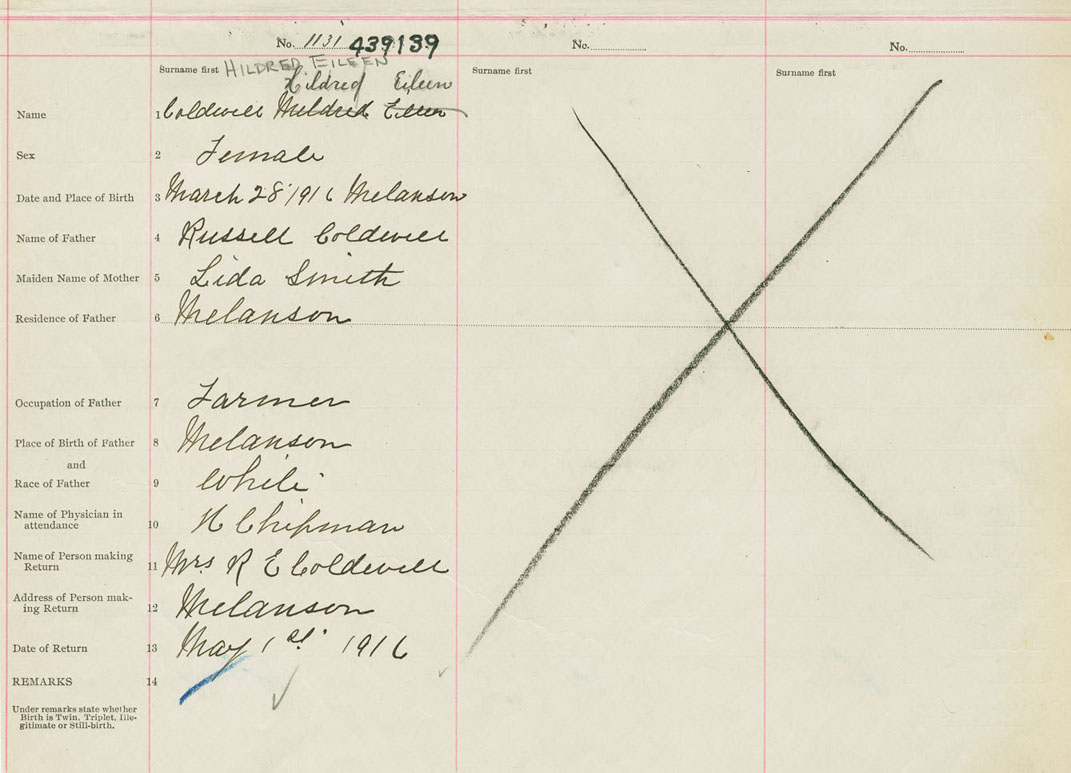 No. 1131 439139 No. No.
Surname first HILDRED EILEEN Surname first Surname first
Hildred Eileen
Name 1 Coldwell Mildred Eileen
Sex 2 Female
Date and Place of Birth 3 March 28 1916 Melanson
Name of Father 4 Russell Coldwell
Maiden Name of Mother 5 Lida Smith
Residence of Father 6 Melanson
Occupation of Father 7 Farmer
Place of Birth of Father 8 Melanson
and
Race of Father 9 White
Name of Physician in
attendance 10 H Chipman
Name of Person making
Return 11 Mrs R E Coldwell
Address of Person mak-
ing Return 12 Melanson
Date of Return 13 May 1st 1916
REMARKS 14
Under remarks state whether
Birth is Twin, Triplet, Ille-
gitimate or Still-birth.